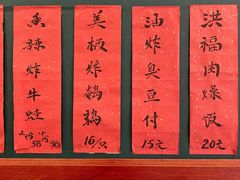 洪福肉燥饭
20元
油炸臭豆付
15元
美极炸鹌鹑
16/只
香辣炸牛蛙
大份 小份
58 38